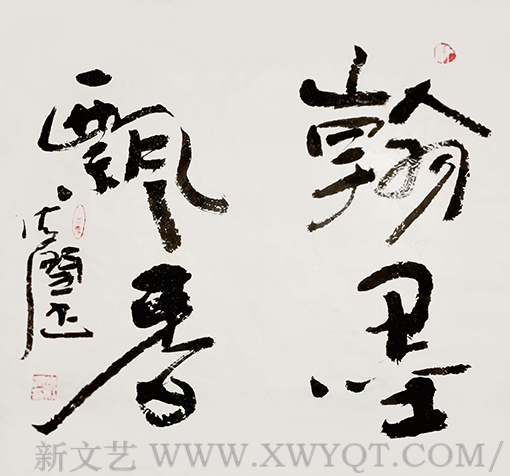 翰墨
飄香
新文艺 WWW.XWYQT.COM/